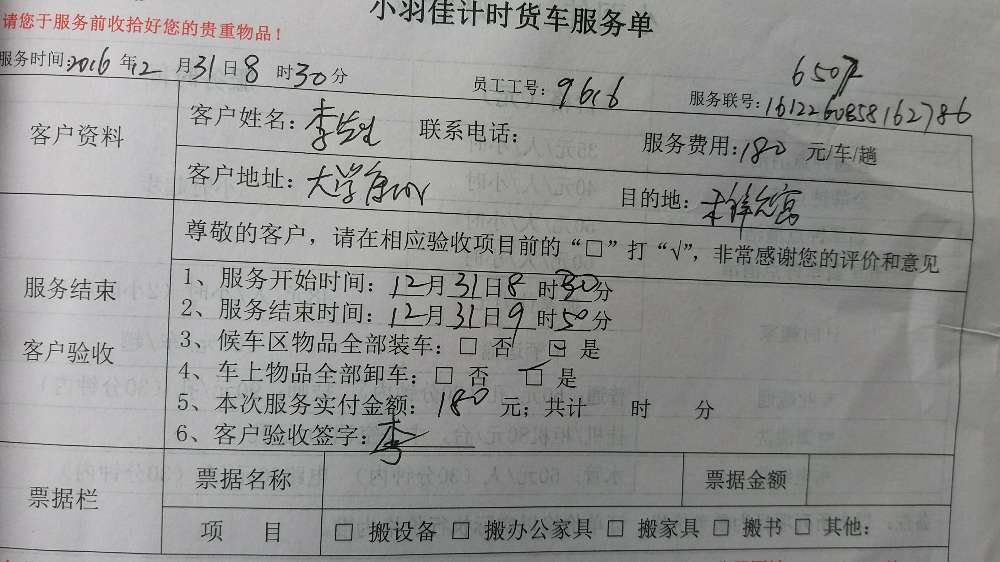 小羽佳计时货车服务单
请您于服务前收拾好您的贵重物品！
服务时间：2016年12月31日8时30分
员工工号：9616
服务联号：
客户资料
客户姓名：李先生 联系电话： 服务费用：180元/车/趟
客户地址：大学 目的地：
尊敬的客户，请在相应验收项目前的“□”打“√”，非常感谢您的评价和意见
服务结束
客户验收
1、服务开始时间：12月31日8时30分
2、服务结束时间：12月31日9时50分
3、候车区物品全部装车：□ 否 □ 是
4、车上物品全部卸车：□ 否 □ 是
5、本次服务实付金额：180元；共计 时 分
6、客户验收签字：李
票据栏
票据名称 票据金额
项 目 □ 搬设备 □ 搬办公家具 □ 搬家具 □ 搬书 □ 其他：